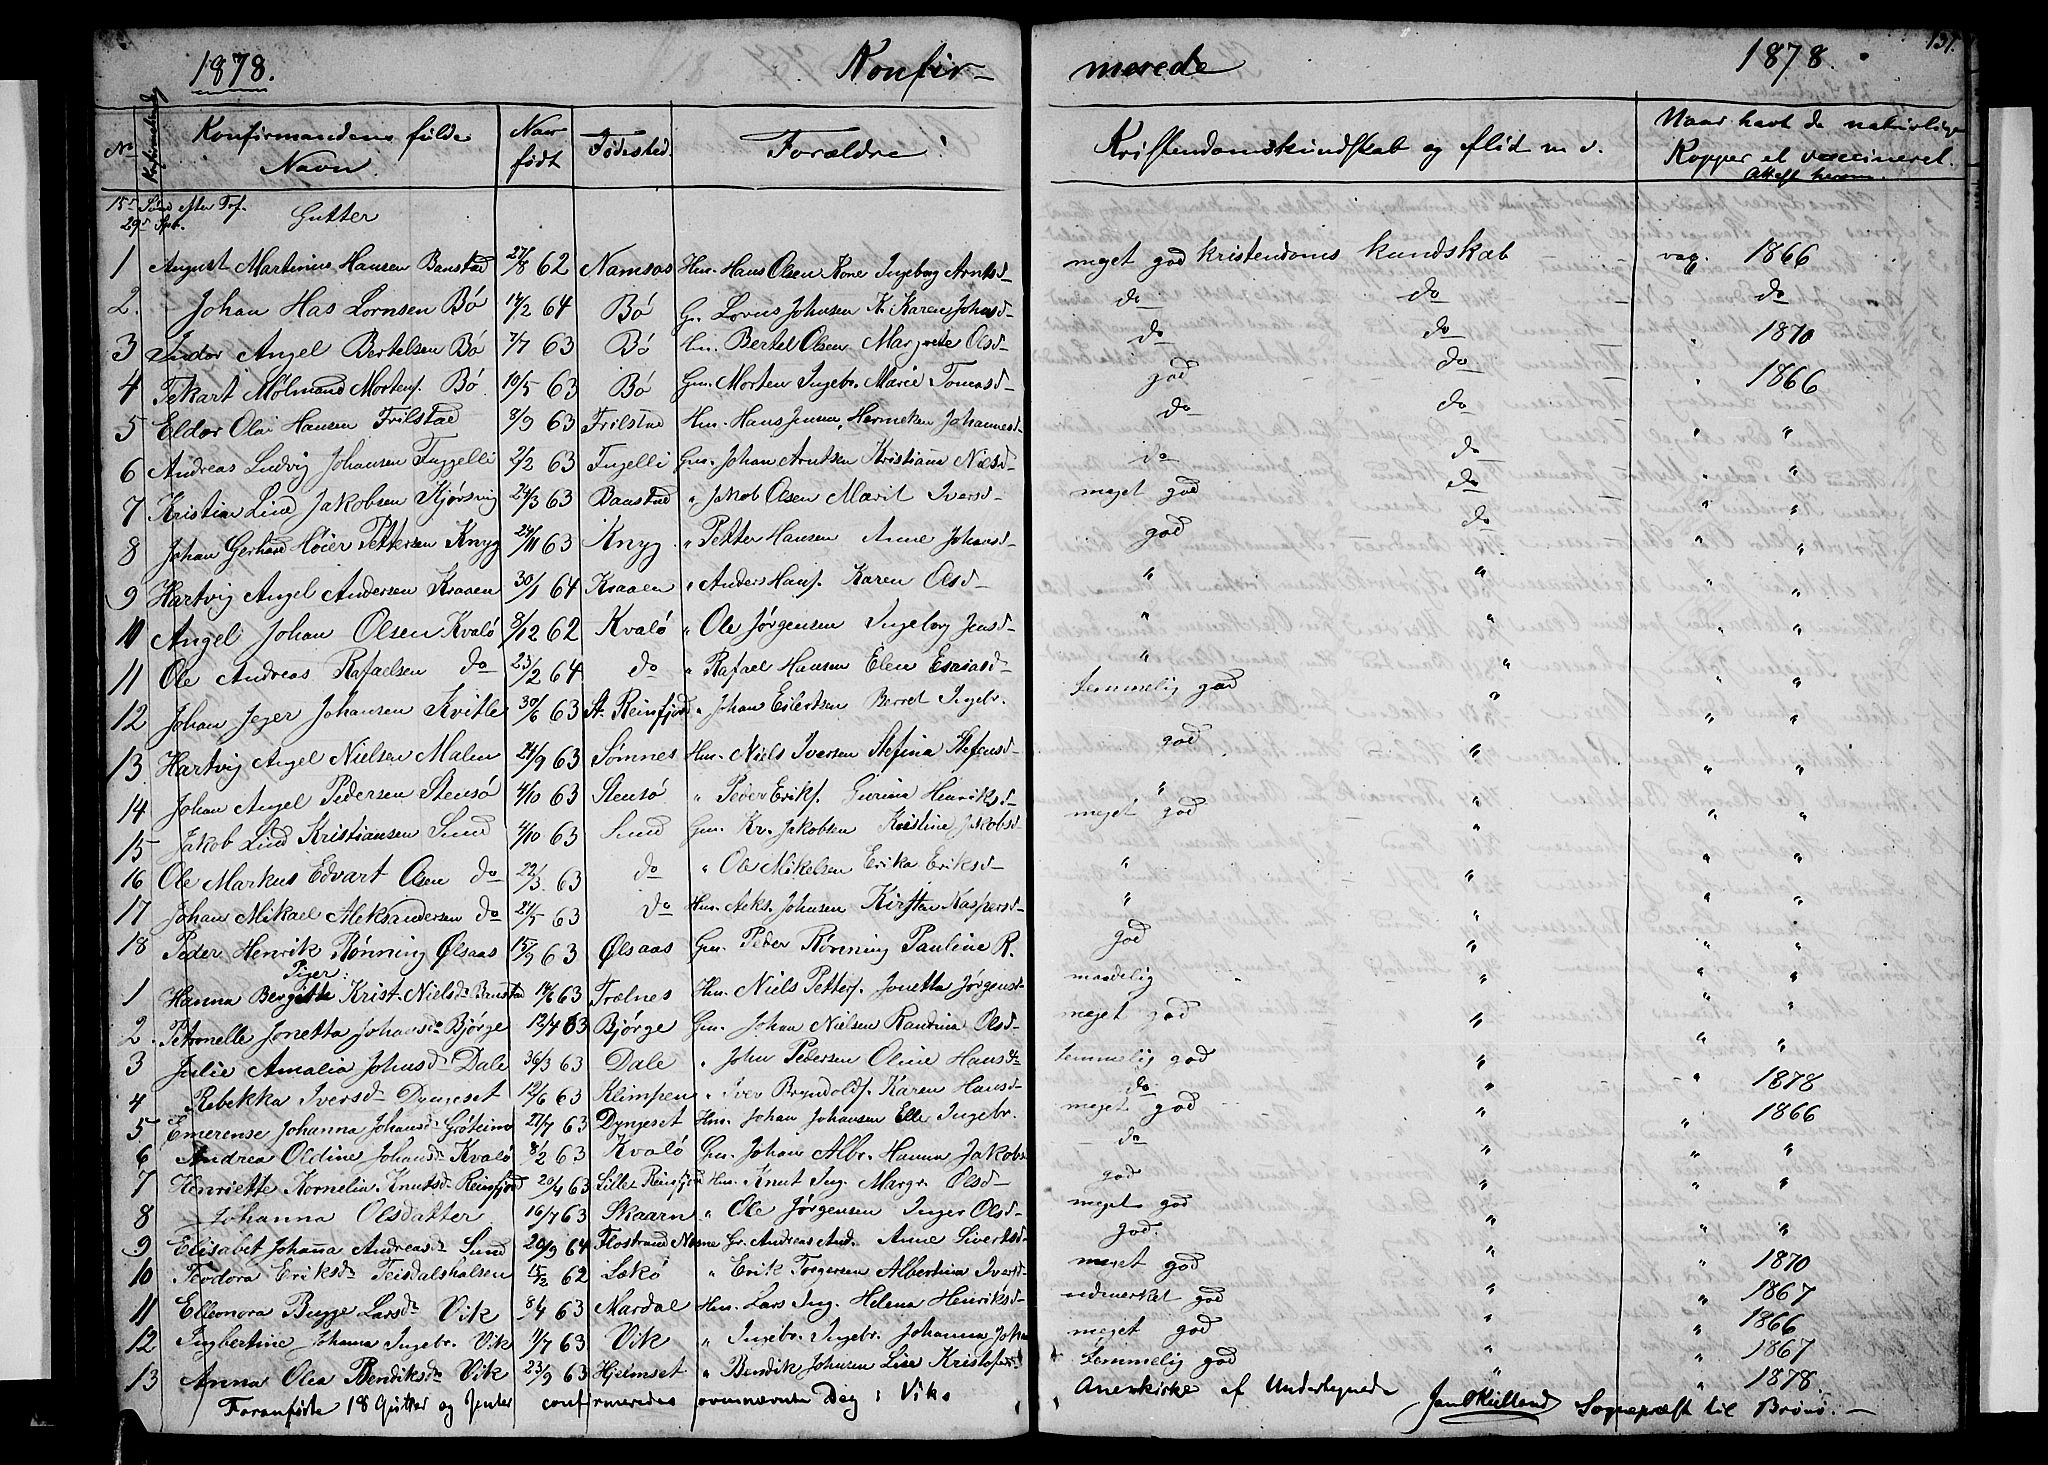 1878. Konfir- merede 1878. 137.
No Konfirmandens fulde Navn. Naar født Fødested. Forældre. Kristendomskundskab og flid m. v. Naar havt de naturlige Kopper el. vaccineret. Attest herom.
15de Sønd. efter Tref.
29de Spb. Gutter
1 August Martinus Hansen Banstad 27/8 62 Namsos Hm. Hans Olsen Kone Ingeborg Arntsd- meget god kristendoms kundskab vax. 1866
2. Johan Has Lornsen Bö 14/2 64 Bö G. Lorns Johnsen K. Karen Johnsd- do do do
3 Indor Angel Bertelsen Bö 7/7 63 Bö Hm. Bertel Olsen Margrete Olsd- do do " 1870
4 Tekart Mölmand Mortens. Bö 10/5 63 Bö Gm. Morten Ingebr. Marie Tomasd- god do " 1866
5 Eldor Olai Hansen Frilstad 8/9 63 Frilstad Hm. Hans Jensen, Hermeken Johannesd- do do " "
6 Andreas Ludvig Johansen Fuggelli 2/2 63 Fugelli Gm. Johan Arntsen Kristiana Nielsd- do do " "
7 Kristian Lind Jakobsen Kjörsvig 24/3 63 Banstad " Jakob Olsen Marit Iversd- meget god do " "
8 Johan Gerhard Höier Pettersen Knyg 24/11 63 Knyg " Petter Hansen Anne Johansd- god do " "
9 Hartvig Angel Andersen Kraaen 30/1 64 Kraaen " Anders Hans. Karen Olsd- " " " "
10 Angel Johan Olsen Kvalö 8/12 62 Kvalö " Ole Jörgensen Ingeborg Jensd- " " " "
11 Ole Andreas Rafaelsen do 23/2 64 do " Rafael Hansen Elen Esaiasd- " " " "
12 Johan Jeger Johansen Kvitle 30/6 63 St. Reinfjord " Johan Eilertsen Berret Ingebr. temmelig god " " "
13 Hartvig Angel Nielsen Malm 24/9 63 Sömnes Hm. Niels Iversen Stefina Stefensd- god " " "
14 Johan Angel Pedersen Stensö 4/10 63 Stensö " Peder Eriks. Gurina Henriksd- " " " "
15 Jakob Lind Kristiansen Sund 4/10 63 Sund Gm. Kr. Jakobsen Kristine Jakobsd- meget god " " "
16 Ole Markus Edvart Olsen do 22/3 63 do " Ole Mikelsen Erika Eriksd- " " " "
17 Johan Mikael Aleksandersen do 21/5 63 do Hm. Aleks. Johnsen Kirsten Kaspersd- " " " "
18 Peder Henrik Rönning Ølsaas 15/9 63 Ølsaas Gm. Peder Rönning Pauline R. god " " "
Piger:
1 Hanna Bergitte Krist. Nielsd- Banstad 14/6 63 Trælnes Hm. Niels Petters. Jonetta Jörgensd- maadelig " " "
2 Petronelle Jonetta Johansd- Björge 12/4 63 Björge Gm. Johan Nielsen Randina Olsd- meget god " " "
3 Julie Amalia Johnsd- Dale 36/3 63 Dale " John Pedersen Oline Hansd- temmelig god " " "
4 Rebekka Iversd- Dyngeset 12/6 63 Klimpen " Iver Bryndolfs. Karen Hansd- do " " 1878
5 Emerense Johanna Johansd- 27/7 63 Dyngeset Hm. Johan Johansen Elle Ingebr. meget god " " 1866
6 Andrea Oldine Johansd- Kvalö 8/2 63 Kvalö Gm. Johan Albr. Hanna Jakobs do " " "
7 Henriette Kornelia Knutsd- Reinfjord 20/4 63 Lille Reinfjord Hm. Knut Ing. Margr. Olsd- god " " "
8 Johanna Olsdatter 16/7 63 Skaarn " Ole Jörgensen Inger Olsd- meget god " " "
9 Elisabet Johanna Andreasd- Sund 20/9 64 Flostrand Næsne G. Andreas And. Anne Sivertsd- god. " " "
10 Teodora Eriksd- Teisdalshalsen 15/2 62 Lækö " Erik Torgersen Albertina Iversd- meget god " " 1870
11 Elleonora Bugge Larsd- Vik 8/4 63 Mardal Hm. Lars Ing. Helena Henriksd- udmerket god " " 1867
12 Ingbertine Johanna Ingebr. Vik 1/7 63 Vik " Ingebr. Ingebr. Johanna Joh meget god " " 1866
13 Anna Olea Bendiksd- Vik 23/9 63 Hjelmset " Bendik Johnsen Lise Kristofersd- temmelig god " " 1867
1878
Foranförte 18 Gutter og Jenter confirmeredes ovennævnte Dag i Viks Anexkirke af Undertegnede Sogneprest til Brönö. -